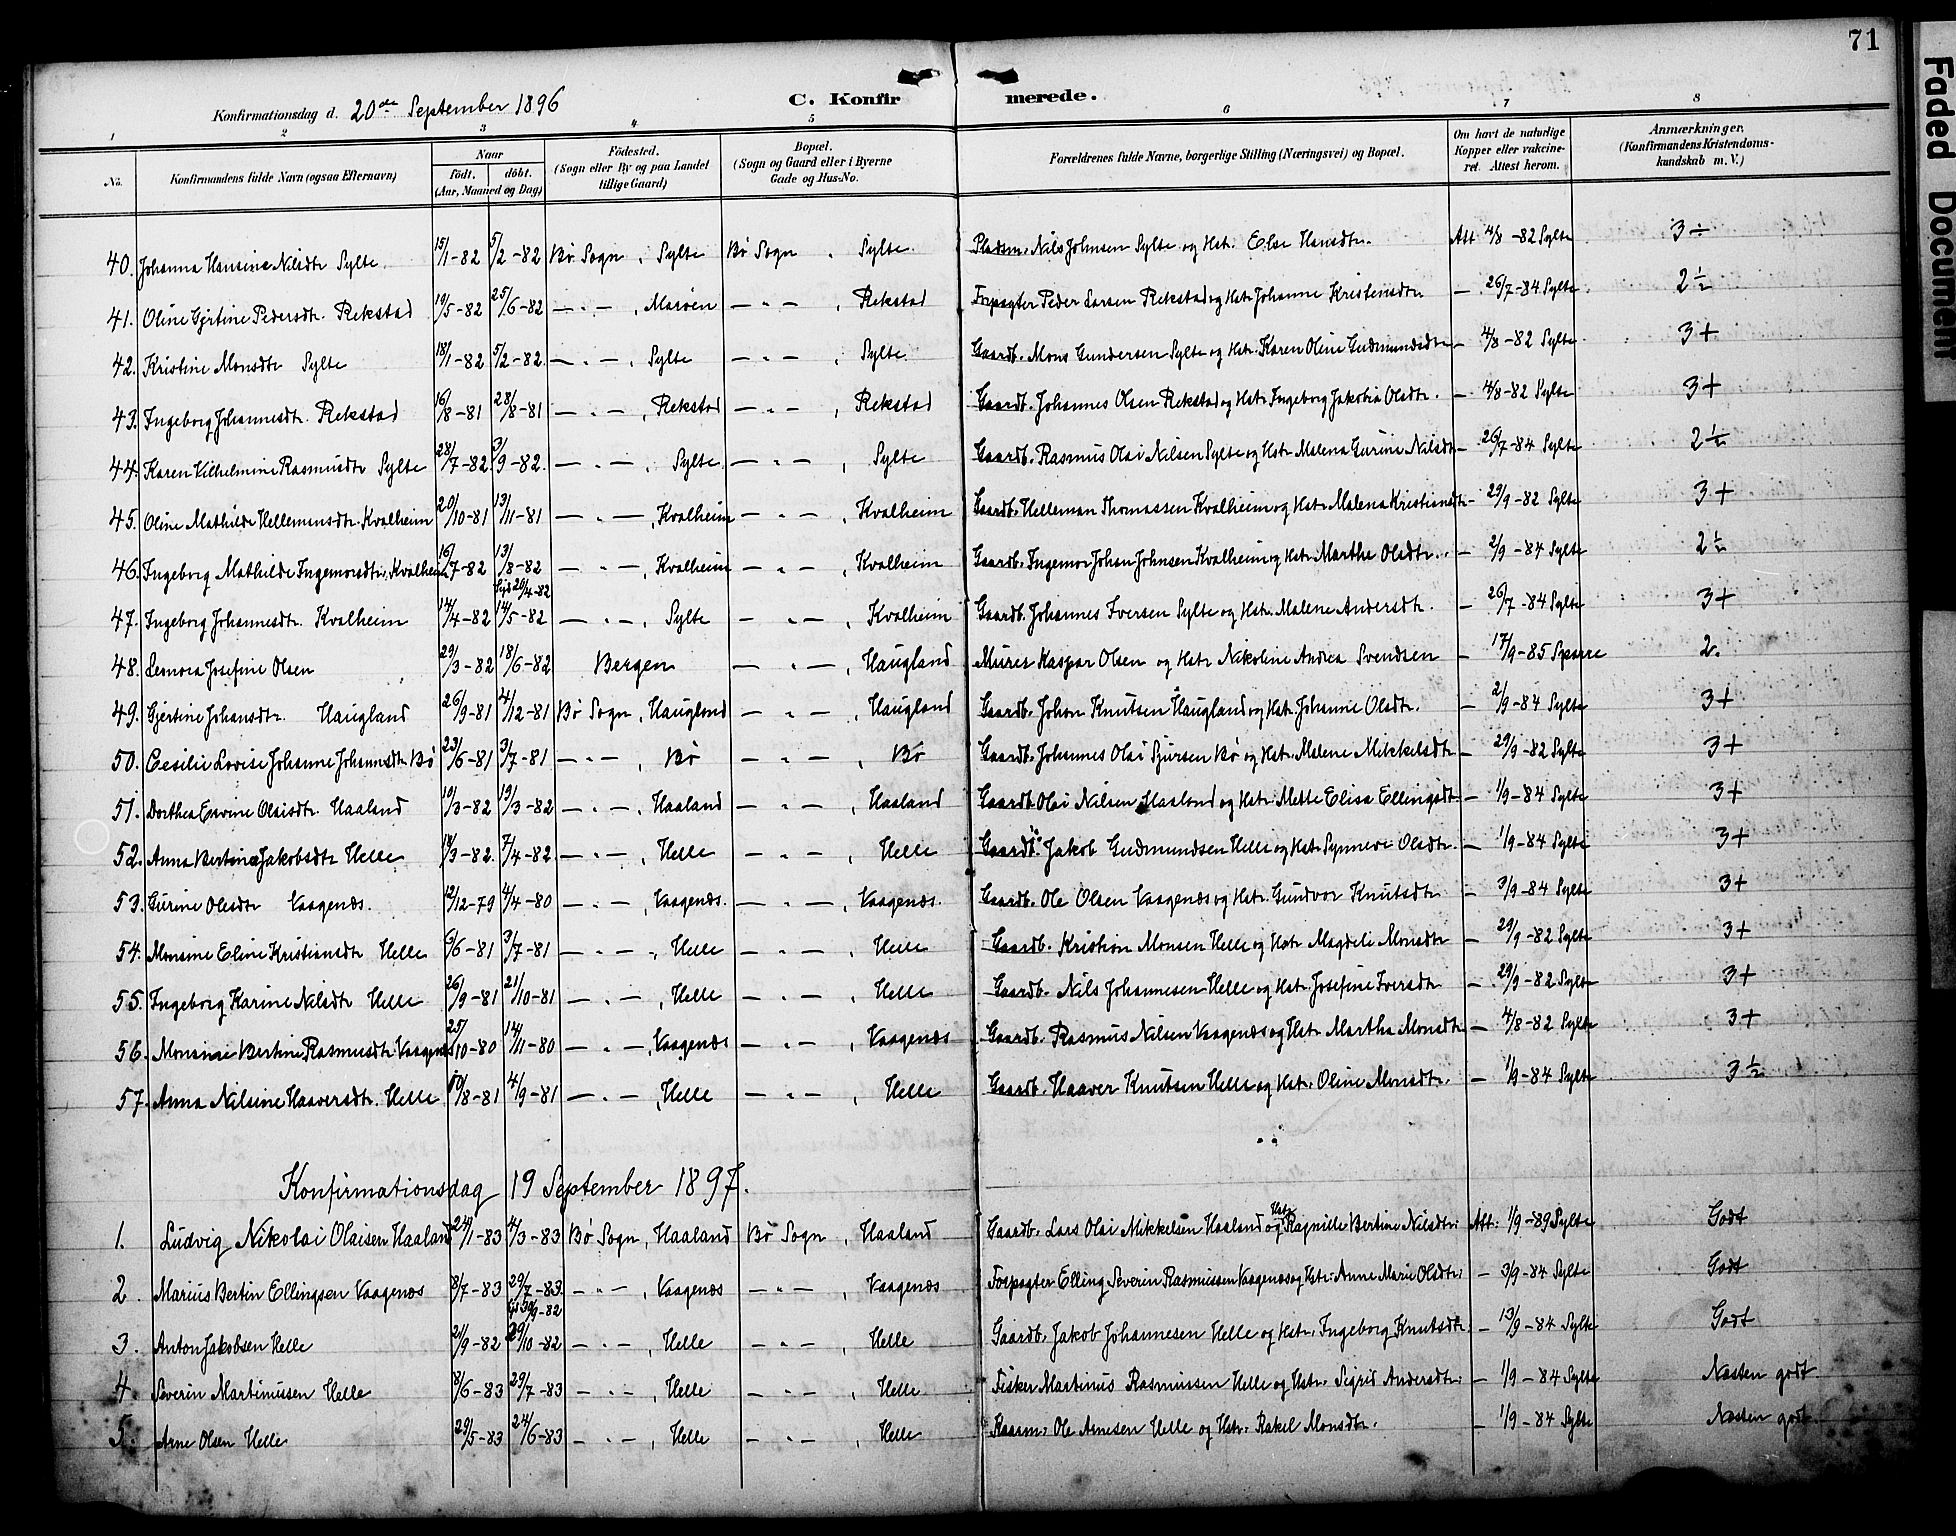 71
Faded Document
Konfirmationsdag d. 20de September 1896 C. Konfirmerede.
1 2 3 4 5 6 7 8
No. Konfirmandens fulde Navn (ogsaa Efternavn) Naar født, døbt. (Aar, Maaned og Dag) Fødested. (Sogn eller By og paa Landet tillige Gaard) Bopæl. (Sogn og Gaard eller i Byerne Gade og Hus-No. Forældrenes fulde Navne, borgerlige Stilling (Næringsvei) og Bopæl. Om havt de naturlige Kopper eller vakcineret. Attest herom. Anmærkninger. (Konfirmandens Kristendomskundskab m. V.)
40. Johanna Hansine Nilsdtr Sylte. 15/1-82 5/2-82 Bø Sogn, Sylte Bø Sogn, Sylte. Pladsm. Nils Johnsen Sylte og Hstr. Else Hansdtr. Att 4/8-82 Sylte 3÷
41. Oline Gjertine Pedersdtr. Rekstad 19/5-82 25/6-82 —"—, Marøen —"—, Rekstad Forpagter Peder Larsen Rekstad og Hstr Johanne Kristensdtr — 26/7-84 Sylte 2½
42. Kristine Monsdtr Sylte 18/1-82 5/2-82. —"—, Sylte —"—, Sylte Gaardb. Mons Gundersen Sylte og Hstr. Karen Oline Gudmundsdtr — 4/8-82 Sylte 3+
43. Ingeborg Johannesdtr. Rekstad 16/8-81 28/8-81 —"—, Rekstad —"—, Rekstad Gaardb. Johannes Olsen Rekstad og Hstr Ingeborg Jakobia Olsdtr. — 4/8-82 Sylte 3+
44. Karen Vilhelmine Rasmusdtr Sylte 28/7-82 3/9-82. —"—, Sylte —"—, Sylte Gaardb. Rasmus Olai Nilsen Sylte og Hstr Malena Gurine Nilsdtr — 26/7-84 Sylte 2½
45. Oline Mathilde Hellemensdtr. Kvalheim 20/10-81 13/11-81 —"—, Kvalheim —"—, Kvalheim Gaardb. Helleman Thomassen Kvalheim og Hstr Malena Kristiansdtr — 29/9-82 Sylte 3+
46. Ingeborg Mathilde Ingemorsdtr, Kvalheim 16/7-82 13/8-82 —"—, Kvalheim —"—, Kvalheim Gaardb. Ingemor Johan Johnsen Kvalheim og Hstr. Marthe Olsdtr. — 2/9-84 Sylte 2½
47. Ingeborg Johannesdtr. Kvalheim 14/4-82 14/5-82 —"—, Sylte —"—, Kvalheim Gaardb. Johannes Iversen Sylte og Hstr. Malene Andersdtr. — 26/7-84 Sylte 3+
48. Leonora Josefine Olsen 29/3-82 18/6-82 Bergen —"—, Haugland Murer Kaspar Olsen og Hstr Nikoline Andrea Svendsen — 17/9-85 Sparre 2.
49. Gjertine Johansdtr. Haugland 26/9-81 4/12-81 Bø Sogn, Haugland —"—, Haugland Gaardb. Johan Knutsen Haugland og Hstr. Johanne Olsdtr. — 2/9-84 Sylte 3+
50. Cesilie Lovise Johanne Johannesdtr Bø 23/6-81 3/7-81 —"—, Bø —"—, Bø Gaardb. Johannes Olai Sjursen Bø og Hstr. Malene Mikkelsdtr — 29/9-82 Sylte 3+
51. Dorthea Ervine Olaisdtr. Haaland 10/3-82 19/3-82 —"—, Haaland —"—, Haaland Gaardb. Olai Nilsen Haaland og Hstr. Mette Elisa Ellingsdtr — 1/9-84 Sylte 3+
52. Anna Bertine Jakobsdtr Helle 14/3-82. 7/4-82 —"—, Helle —"—, Helle Gaardb. Jakob Gudmundsen Helle og Hstr. Synneve Olsdtr. — 1/9-84 Sylte 3+
53. Gurine Olsdtr Vaagenæs. 12/12-79 4/4-80 —"—, Vaagenæs. —"—, Vaagenæs. Gaardb. Ole Olsen Vaagenæs og Hstr. Gundvor Knutsdtr — 3/9-84 Sylte 3+
54. Monsine Eline Kristiansdtr Helle 6/6-81 3/7-81 —"—, Helle —"—, Helle Gaardb. Kristian Monsen Helle og Hstr Magdeli Monsdtr — 29/9-82 Sylte 3+
55. Ingeborg Karine Nilsdtr Helle 26/9-81 21/10-81 —"—, Helle —"—, Helle Gaardb. Nils Johannesen Helle og Hstr. Josefine Iversdtr — 29/9-82 Sylte 3+
56. Monsine Bertine Rasmusdtr. Vaagenæs 25/10-80 14/11-80 —"—, Vaagenæs —"—, Vaagenæs Gaardb. Rasmus Nilsen Vaagenæs og Hstr. Martha Monsdtr. — 4/8-82 Sylte 3+
57. Anna Nilsine Haaversdtr. Helle 10/8-81 4/9-81 —"—, Helle —"—, Helle Gaardb. Haaver Knutsen Helle og Hstr. Oline Monsdtr. — 1/9-84 Sylte 3½
Konfirmationsdag 19 September 1897.
1. Ludvig Nikolai Olaisen Haaland 24/1-83 4/3-83 Bø Sogn, Haaland Bø Sogn, Haaland Gaardb. Lars Olai Mikkelsen Haaland og Hstr. Ragnille Bertine Nilsdtr. Att. 1/9-89 Sylte Godt
2. Marius Bertin Ellingsen Vaagenæs 8/7-83 29/7-83. —"—, Vaagenæs —"—, Vaagenæs Forpagter Elling Severin Rasmussen Vaagenæs og Hstr. Anne Marie Olsdtr. — 3/9-84 Sylte Godt
3. Anton Jakobsen Helle 21/9-82 29/10-82 —"—, Helle —"—, Helle Gaardb. Jakob Johannesen Helle og Hstr. Ingeborg Knutsdtr. — 13/9-84 Sylte Godt
4. Severin Martinussen Helle 8/6-83 29/7-83 —"—, Helle —"—, Helle Fisker Martinus Rasmussen Helle og Hstr. Sigrid Andersdtr. — 1/9-84 Sylte Næsten godt
5. Arne Olsen Helle 29/5-83 24/6-83 —"—, Helle —"—, Helle Ole Arnesen Helle og Hstr. Rakel Monsdtr. — 1/9-84 Sylte Næsten godt